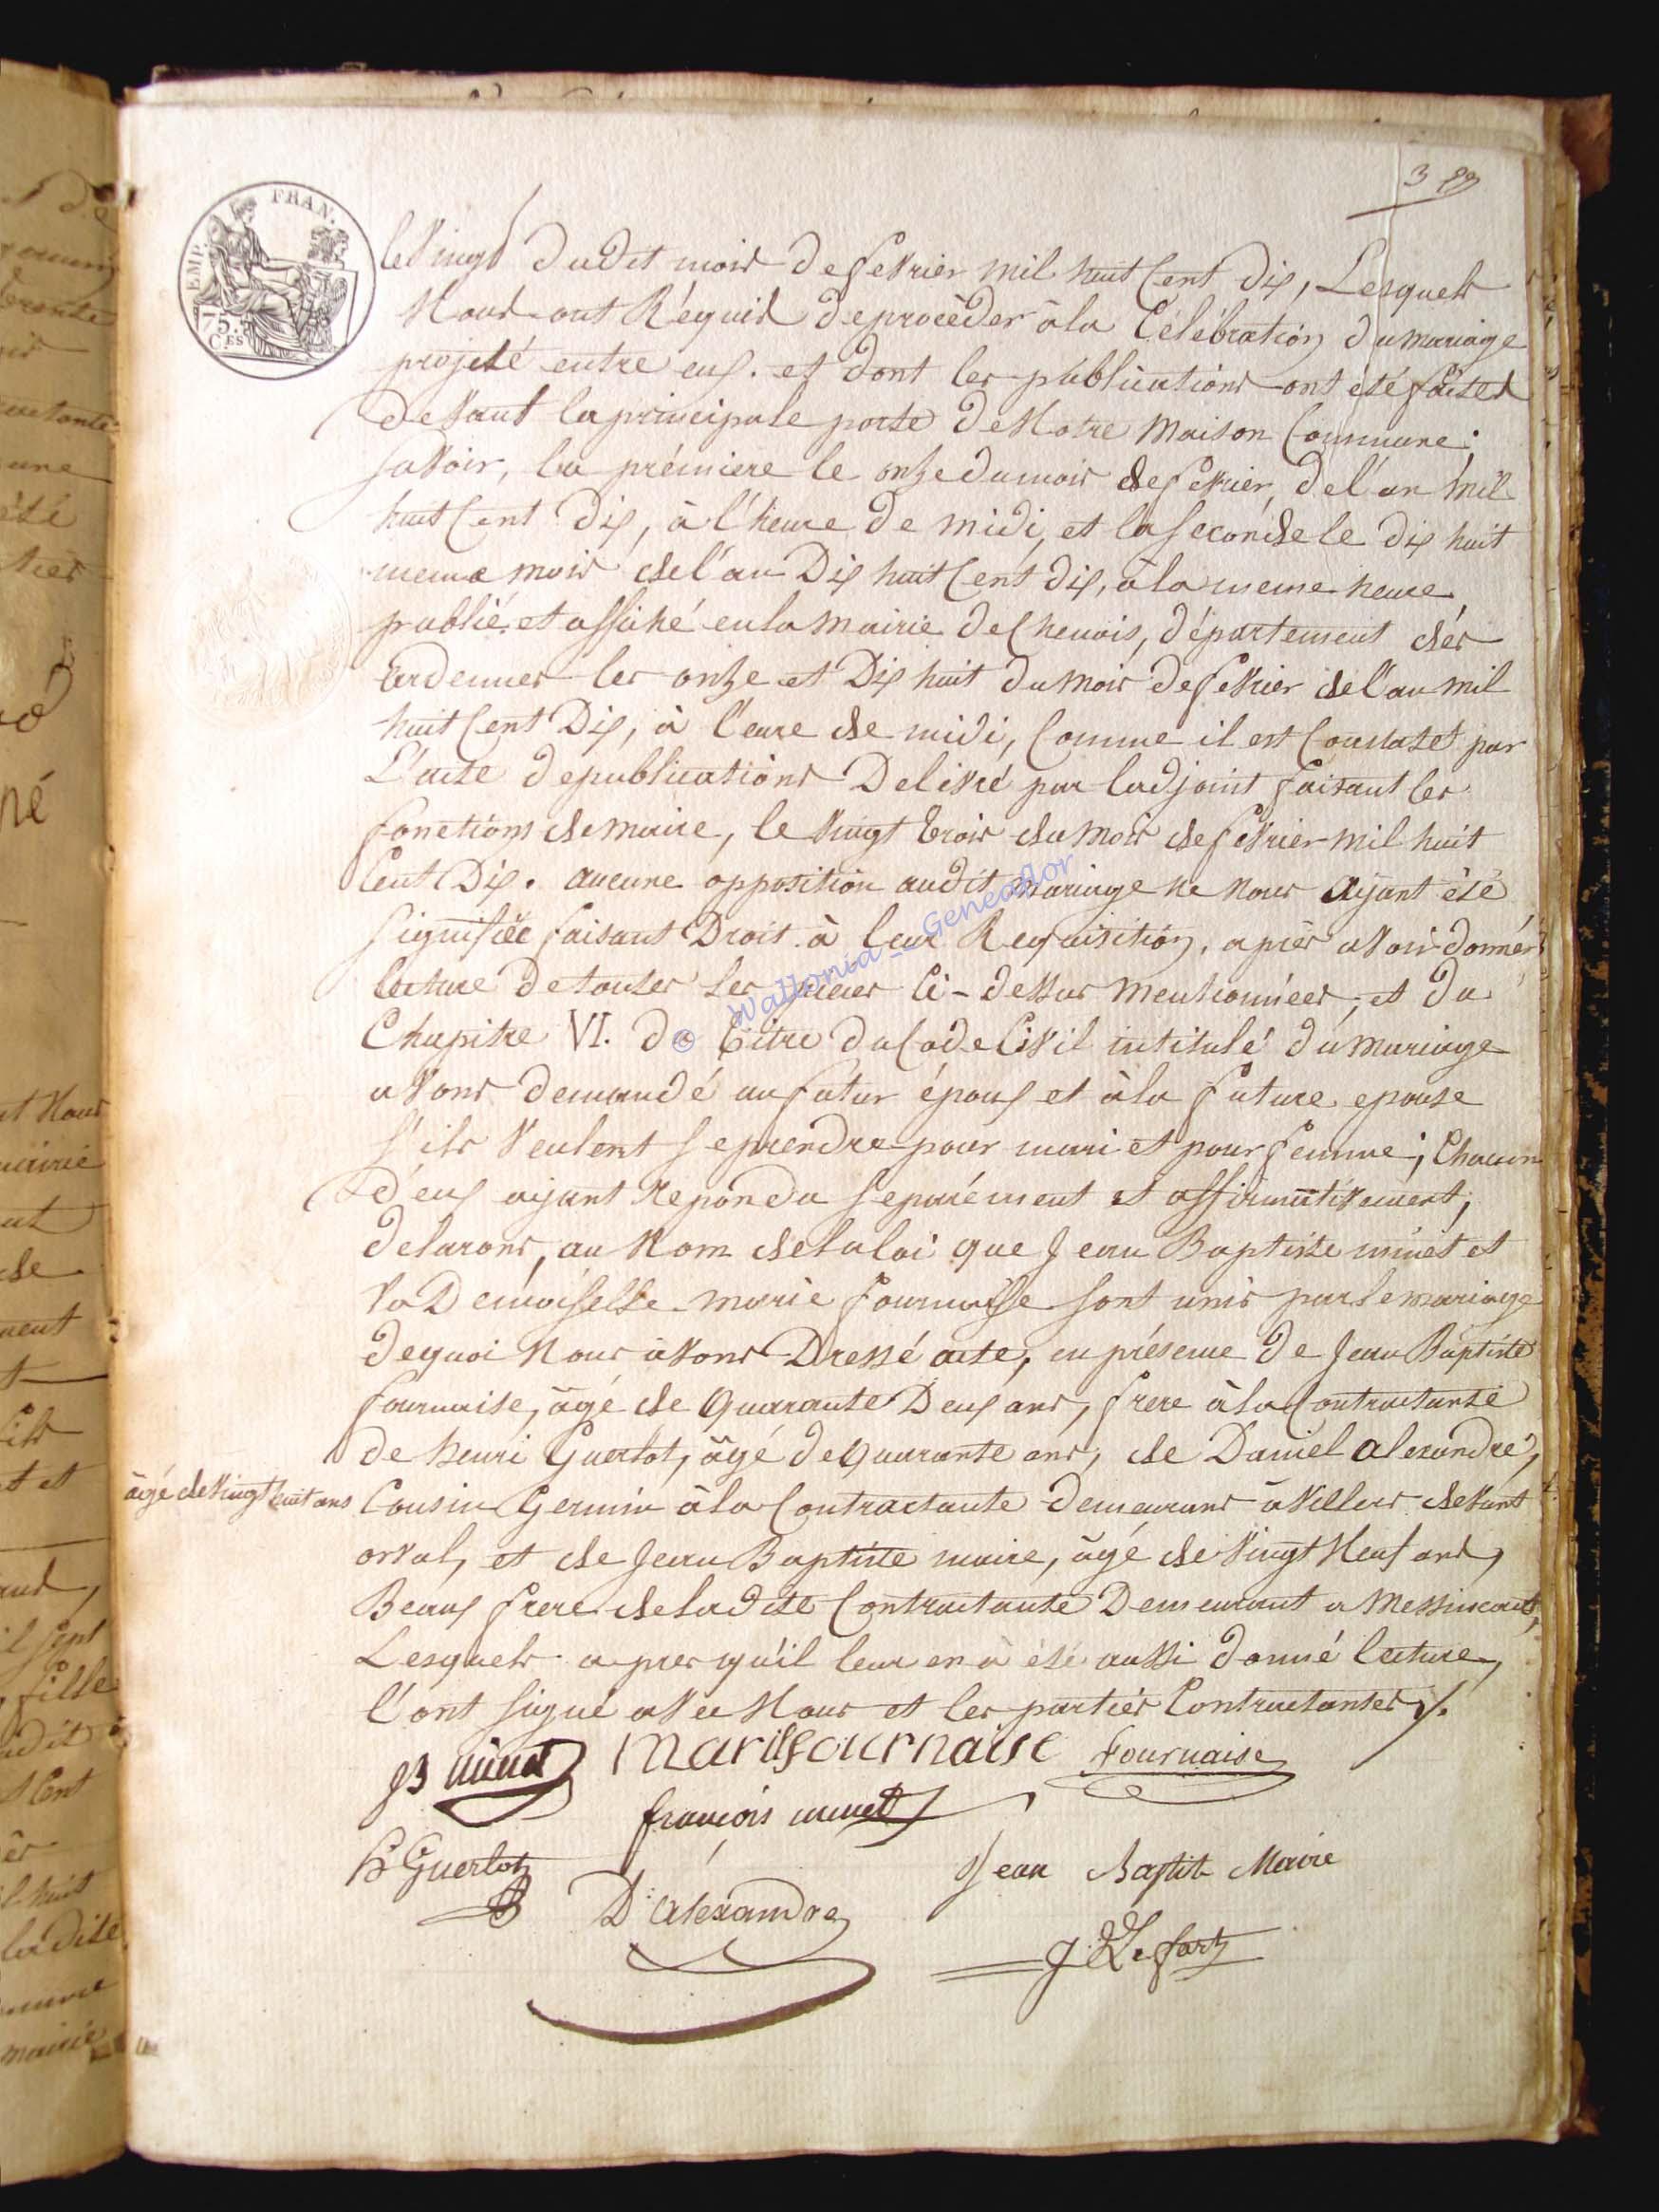 EMP. FRAN.
75. CES
le Vingt dudit mois de fevrier mil huit Cent dix, Lesquels
Nous ont Réquis de procéder à la Célébration du mariage
projeté entre eux. et dont les publications ont été faites
devant la principale porte de Notre Maison Commune;
savoir, la prémiere le onze du mois de fevrier, de l'an mil
huit Cent dix, à l'heure de midi, et la seconde le dix huit
meme mois de l'an Dix huit Cent dix, à la meme heure
publié et affiché en la mairie de Chenois, département des
ardennes les onze et Dix huit du mois de fevrier de l'an mil
huit Cent Dix, à l'eure de midi, Comme il est Constatet par
L'acte de publications Delivré par ladjoint faisant les
fonctions de maire, le vingt trois du mois de fevrier mil huit
Cent Dix. aucune opposition audit mariage ne nous ayant été
signifiée faisant Droit à leur Requisition, après avoir donnér
lecture de toutes les pieces Ci-dessus mentionnées, et du
Chapitre VI. du titre du Code Civil intitulé du mariage
avons demandé au futur époux et à la future epouse
s'ils veulent se prendre pour mari et pour femme; Chacun
d'eux ayant repondu separément et affirmativement,
delarons, au Nom de la loi que Jean Baptiste minet et
la Demoiselle marie fournaise sont unis par le mariage
de quoi Nous avons Dressé acte, en présence de Jean Baptiste
fournaise, âgé de quarante Deux ans, frere à la Contractante
de henri Guerlot, âgé de quarante ans, de Daniel alexandre,
âgé de vingt huit ans Cousin Germin à la Contractante demeurans à Villers devant
orval, et de Jean Baptiste maire, âgé de vingt Neuf ans,
Beaux frere de ladite Contractante Demeurant a Messincourt,
Lesquels apres qu'il leur en a été aussi donné lecture,
l'ont signé avec Nous et les partiés Contractantes ./.
JB minet marie fournaise fournaise
françois minet
h Guerlot
Jean Baptiste Maire
D. alexandre
© Wallonia _ Geneaflor